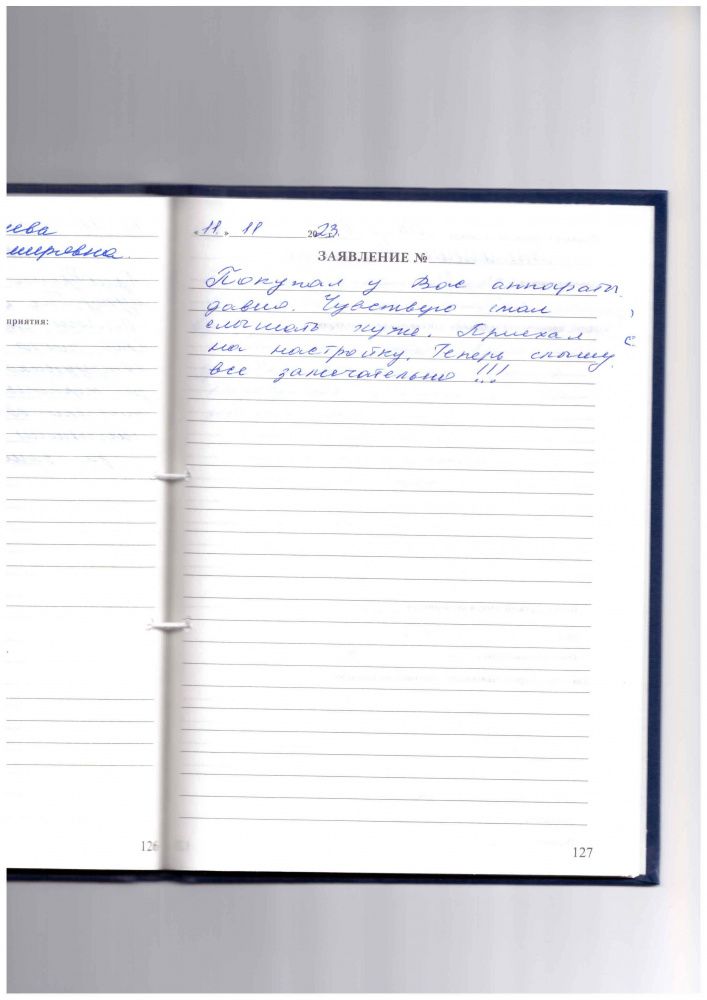 ева
мировна.
приятия:
126
«11» 11 2023.
ЗАЯВЛЕНИЕ №
Покупал у Вас аппараты
давно. Чувствую стал
слышать хуже. Приехал
на настройку. Теперь слышу
все замечательно!!!
127